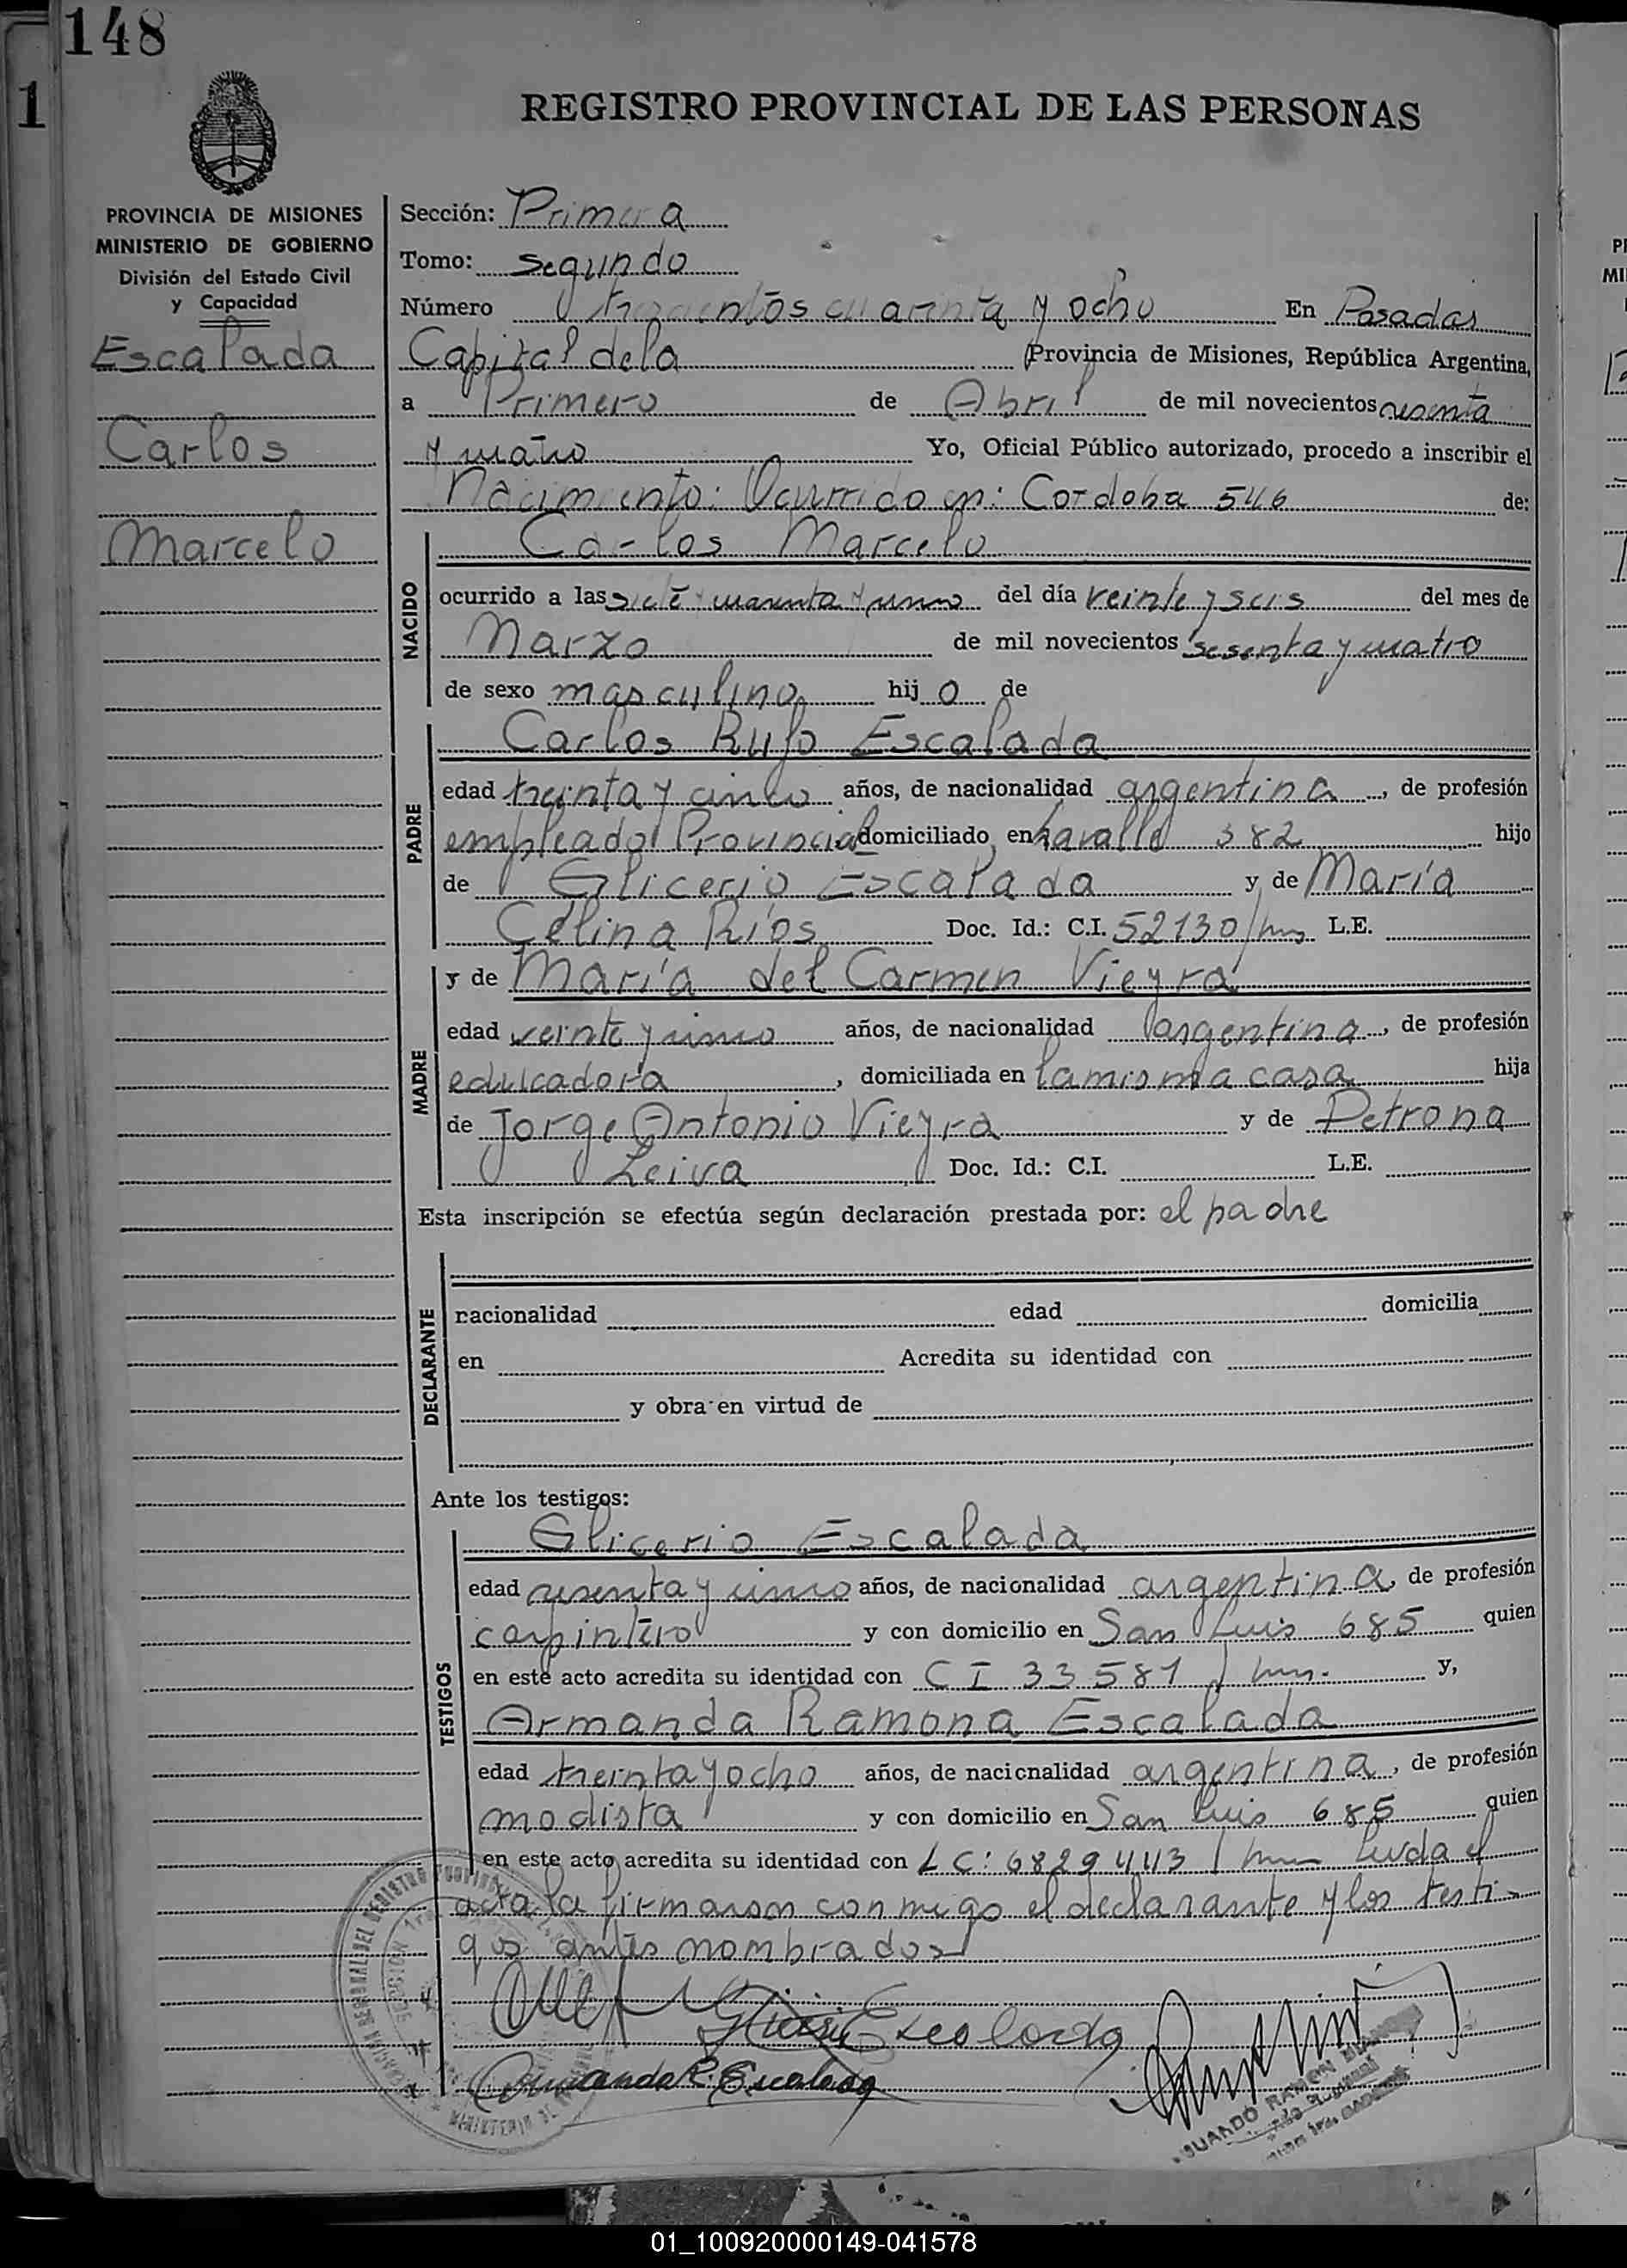 148
1
REGISTRO PROVINCIAL DE LAS PERSONAS
PROVINCIA DE MISIONES
MINISTERIO DE GOBIERNO
División del Estado Civil
y Capacidad
Escalada
Carlos
Marcelo
Sección: Primera
Tomo: segundo
Número trescientos cuarenta y ocho En Posadas
Capital de la Provincia de Misiones, República Argentina,
a Primero de Abril de mil novecientos sesenta
y cuatro Yo, Oficial Público autorizado, procedo a inscribir el
Nacimiento: Ocurrido en: Cordoba 546 de:
NACIDO
Carlos Marcelo
ocurrido a las siete y cuarenta y cinco del día veinte y seis del mes de
Marzo de mil novecientos sesenta y cuatro
de sexo masculino hij o de
PADRE
Carlos Rufo Escalada
edad treinta y cinco años, de nacionalidad argentina, de profesión
empleado Provincial domiciliado en Lavalle 382 hijo
de Glicerio Escalada y de María
Celina Ríos Doc. Id.: C.I. 52130/ L.E.
MADRE
y de María del Carmen Vieyra
edad veinte y cinco años, de nacionalidad argentina, de profesión
educadora, domiciliada en la misma casa hija
de Jorge Antonio Vieyra y de Petrona
Leiva Doc. Id.: C.I. L.E.
Esta inscripción se efectúa según declaración prestada por: el padre
DECLARANTE
nacionalidad edad domicilia
en Acredita su identidad con
y obra en virtud de
Ante los testigos:
TESTIGOS
Glicerio Escalada
edad sesenta y cinco años, de nacionalidad argentina, de profesión
carpintero y con domicilio en San Luis 685 quien
en este acto acredita su identidad con C I 33581 y,
Armanda Ramona Escalada
edad treinta y ocho años, de nacionalidad argentina, de profesión
modista y con domicilio en San Luis 685 quien
en este acto acredita su identidad con L C: 6829443 / Leida el
acta la firmaron conmigo el declarante y los testi-
gos antes nombrados
Glicerio Escalada
Armanda R. Escalada
01_100920000149-041578